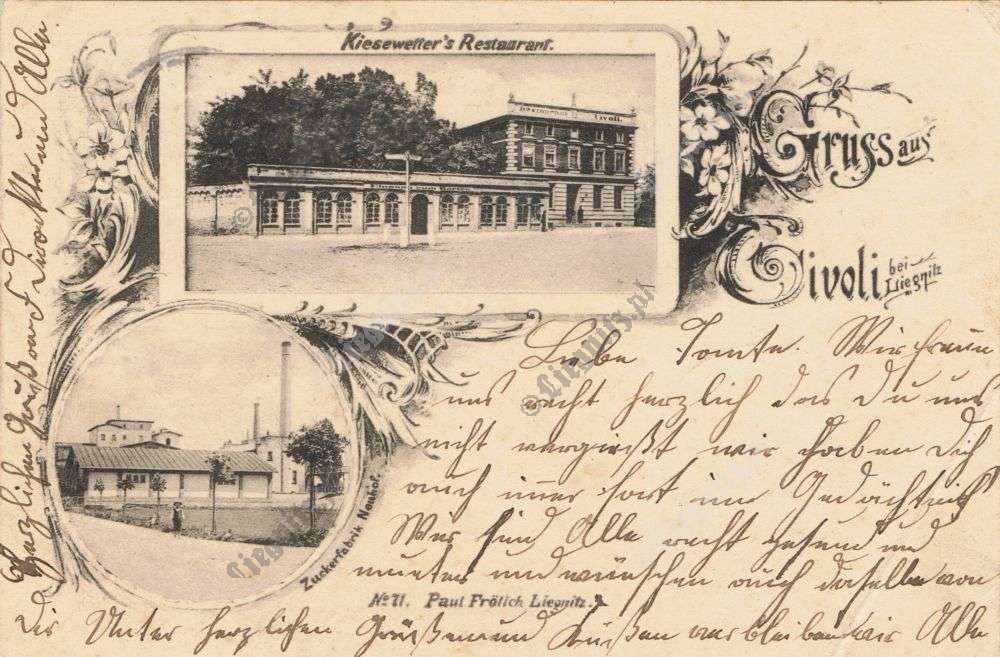 Kiesewetter's Restaurant.
Restaurant Tivoli.
Gruss aus
Tivoli bei Liegnitz
Zuckerfabrik Neuhof.
No 71. Paul Frölich Liegnitz.
Liebe Tante. Wir freuen
uns recht herzlich das Du uns
nicht vergießt wir haben Dich
auch imer fort im Gedächtniß
Wir sind Alle recht gesund und
munter und wünschen auch daselbe von
Dir Unter herzlichen Grüßen und Küßen verbleiben wir Alle
Herzlichen Gruß von und Alle
© Liegnitz.pl